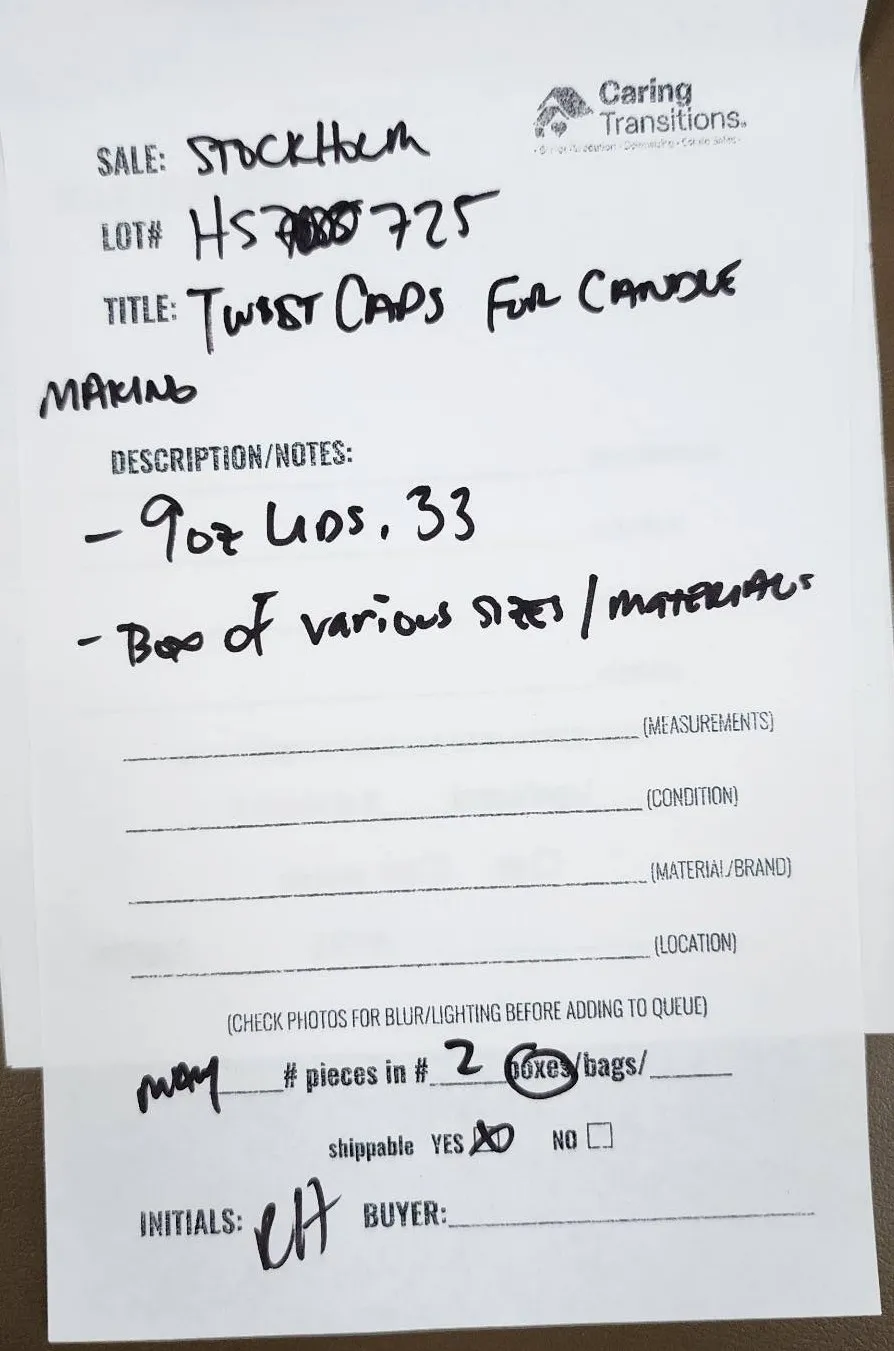 Caring
Transitions.
SALE: STOCKHOLM
LOT# HS 725
TITLE: TWIST CAPS FOR CANDLE
MAKING
DESCRIPTION/NOTES:
- 9oz LIDS. 33
- Box of various SIZES / MATERIALS
(MEASUREMENTS)
(CONDITION)
(MATERIAL/BRAND)
(LOCATION)
(CHECK PHOTOS FOR BLUR/LIGHTING BEFORE ADDING TO QUEUE)
many # pieces in # 2 boxes/bags/
shippable YES NO
INITIALS: RH BUYER: